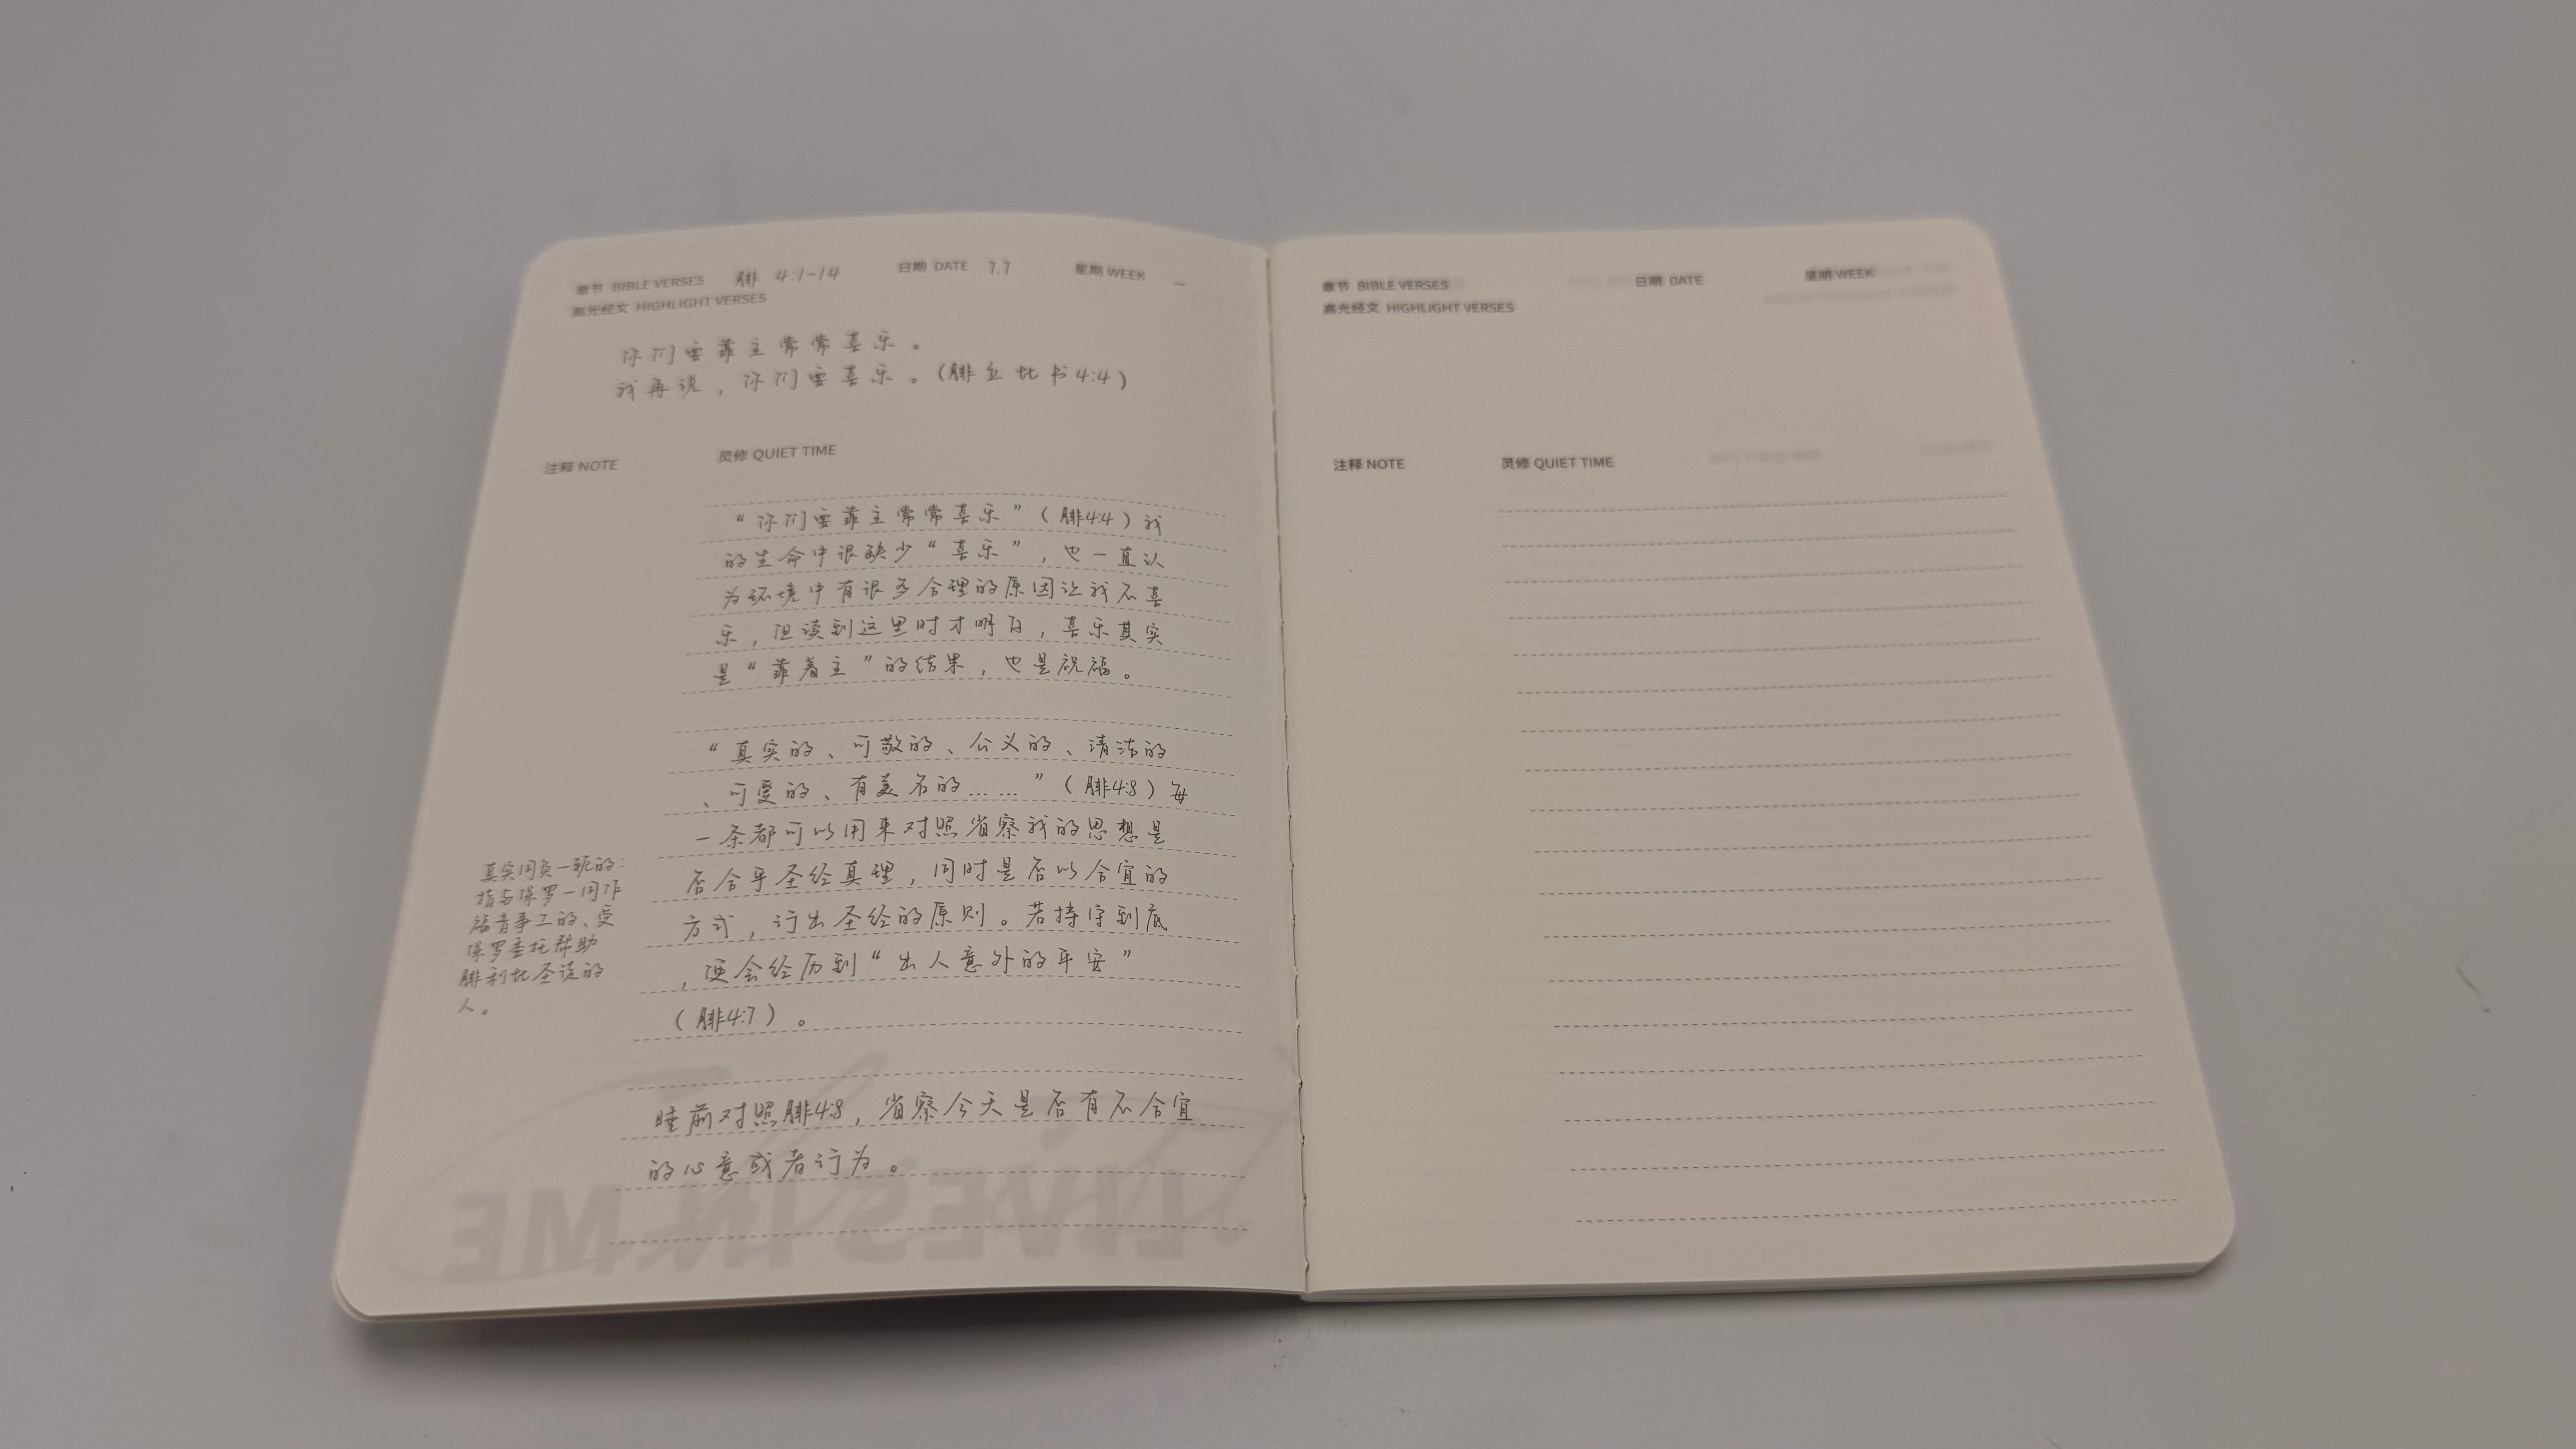 章节 BIBLE VERSES 腓 4:1-14 日期 DATE 7.7 星期 WEEK 一
高光经文 HIGHLIGHT VERSES
你们要靠主常常喜乐。
我再说，你们要喜乐。(腓立比书4:4)
注释 NOTE 灵修 QUIET TIME
“你们要靠主常常喜乐”(腓4:4)我
的生命中很缺少“喜乐”，也一直认
为环境中有很多合理的原因让我不喜
乐，但读到这里时才明白，喜乐其实
是“靠着主”的结果，也是祝福。
“真实的、可敬的、公义的、清洁的
、可爱的、有美名的……”(腓4:8)每
一条都可以用来对照省察我的思想是
否合乎圣经真理，同时是否以合宜的
方式，行出圣经的原则。若持守到底
，便会经历到“出人意外的平安”
(腓4:7)。
睡前对照腓4:8，省察今天是否有不合宜
的心意或者行为。
真实同负一轭的：
指与保罗一同作
福音事工的、受
保罗委托帮助
腓利比圣徒的
人。
LIVES IN ME
章节 BIBLE VERSES 日期 DATE 星期 WEEK
高光经文 HIGHLIGHT VERSES
注释 NOTE 灵修 QUIET TIME